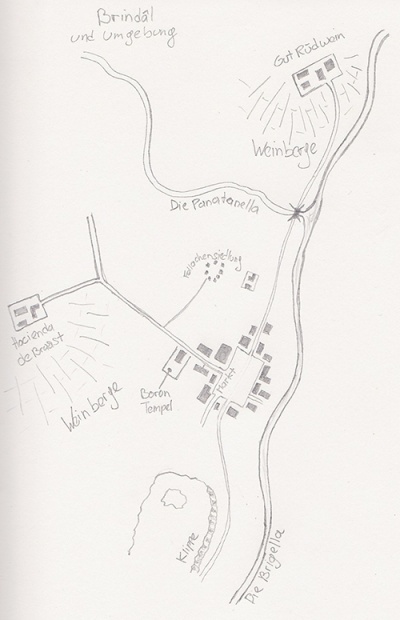 Brindâl
und Umgebung
Gut Rüdwein
Weinberge
Die Panatanella
Fellachensiedlung
Hacienda
de Braast
Weinberge
Boron
Tempel
Markt
Klippe
Die Brigella